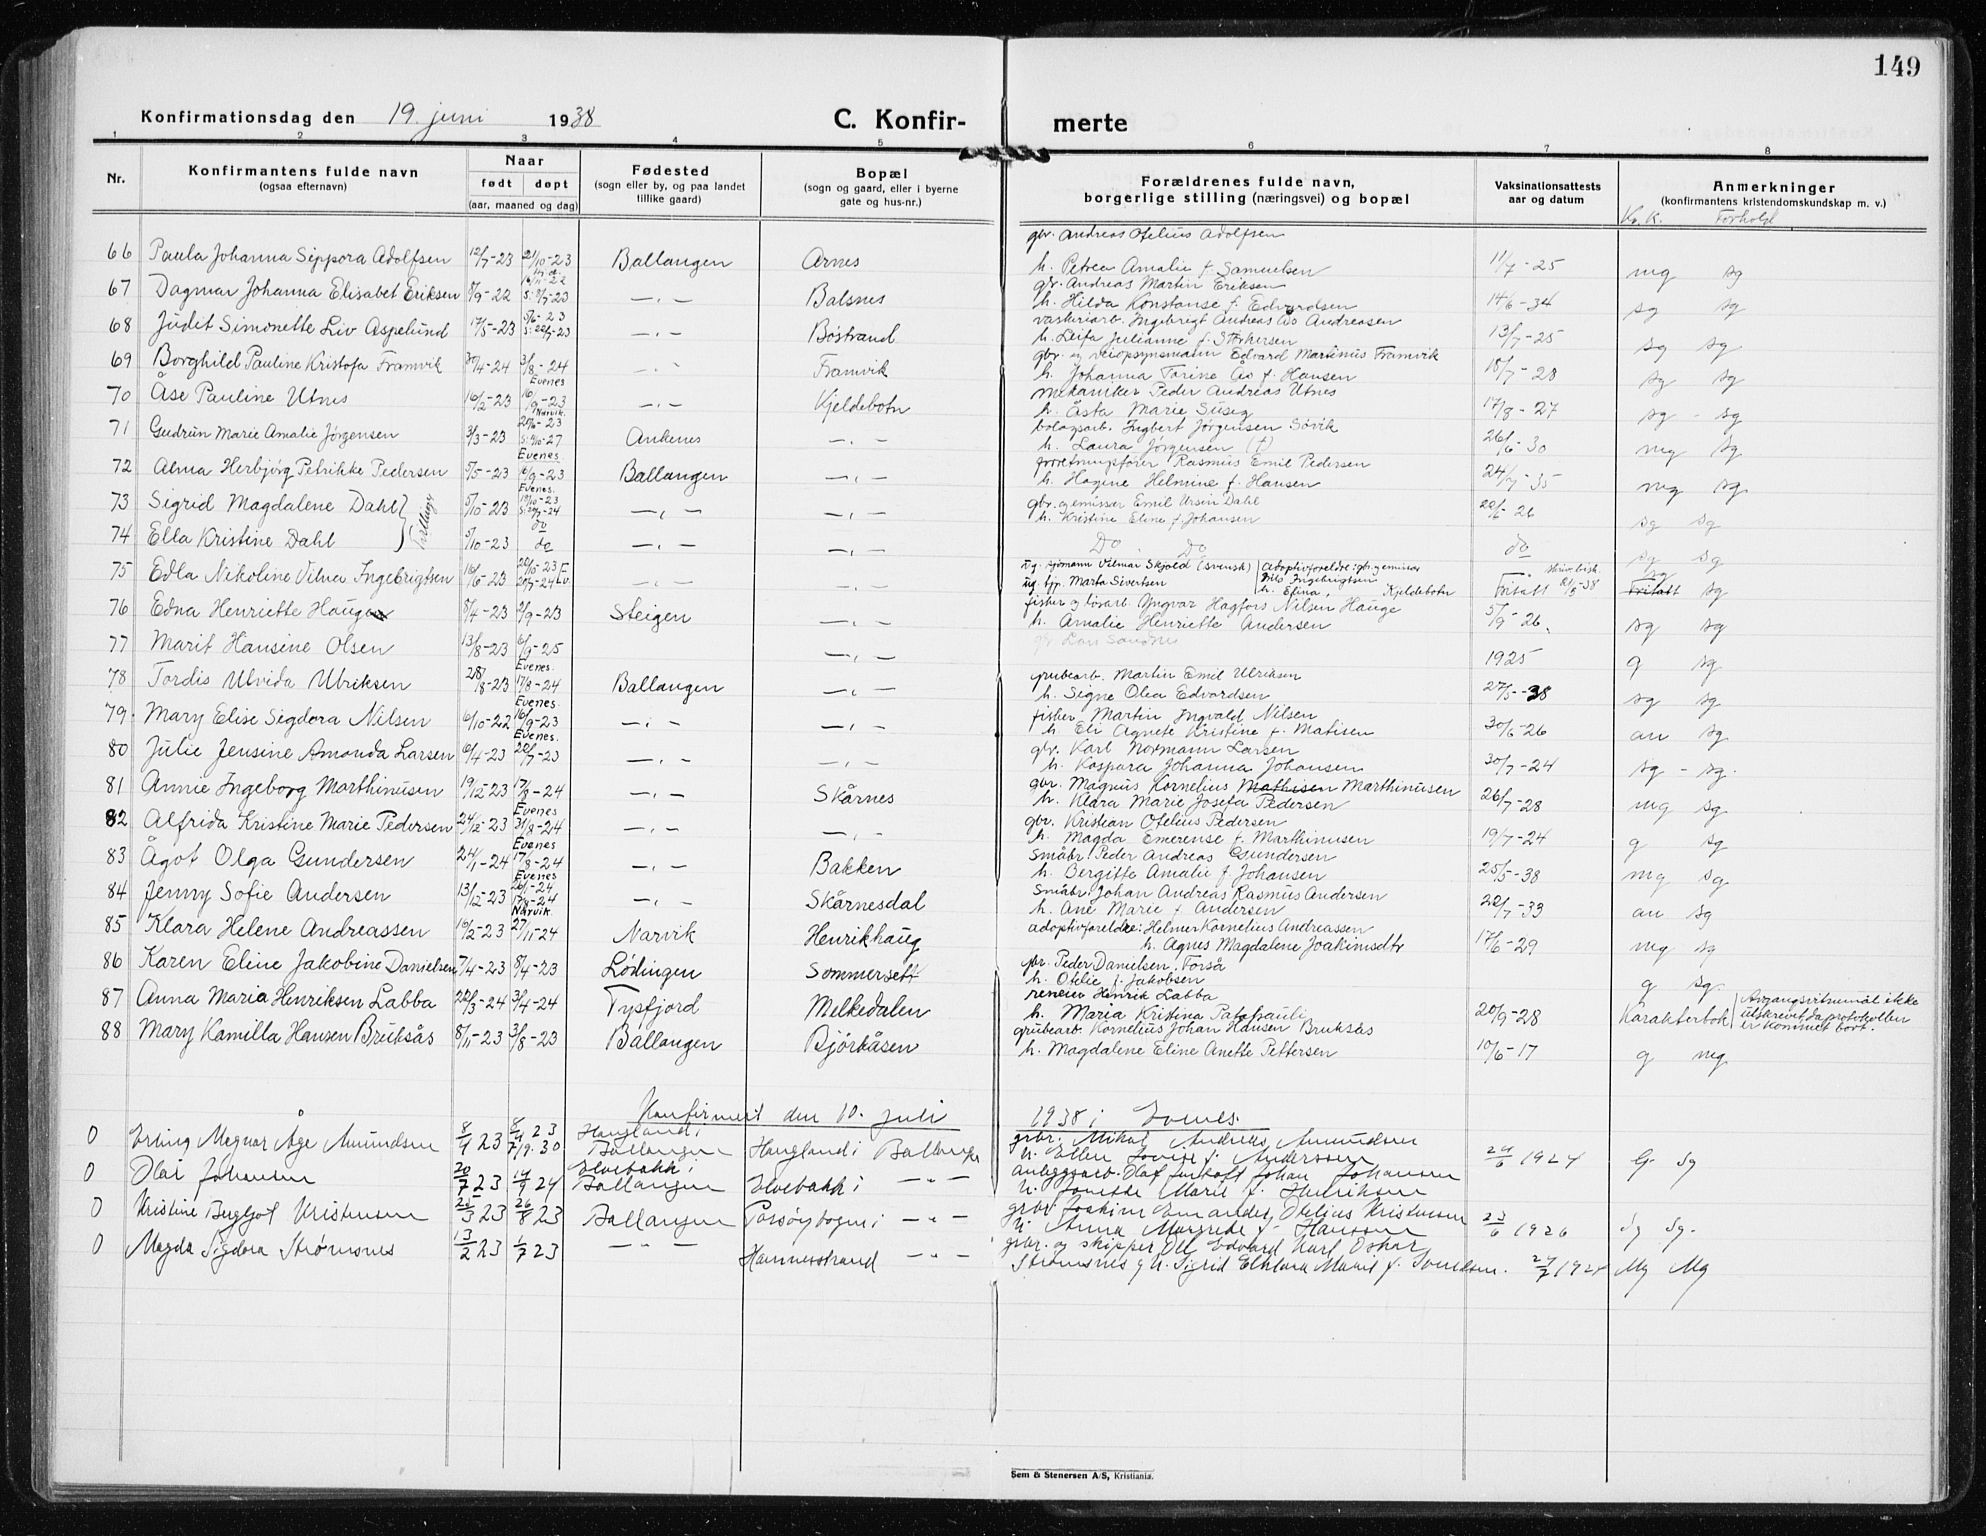 149
Konfirmationsdag den 19. juni 1938 C. Konfir- merte
1 2 3 4 5 6 7 8
Nr. Konfirmantens fulde navn (ogsaa efternavn) Naar født døpt (aar, maaned og dag) Fødested (sogn eller by, og paa landet tillike gaard) Bopæl (sogn og gaard, eller i byerne gate og hus-nr.) Forældrenes fulde navn, borgerlige stilling (næringsvei) og bopæl Vaksinationsattests aar og datum Anmerkninger (konfirmantens kristendomskundskap m. v.)
Kr. K. Forhold
66 Paula Johanna Sippora Adolfsen 12/7-23 21/10-23 Ballangen Arnes gbr. Andreas Ofelius Adolfsen h. Petrea Amalie f. Samuelsen 11/7-25 mg sg
67 Dagmar Johanna Elisabet Eriksen 8/9-22 Balsnes gbr. Andreas Martin Eriksen h. Hilda Konstanse f. Edvardsen 14/6-34 sg sg
68 Judit Simonette Liv Aspelund 17/5-23 Bøstrand Ingebrigt Andreas Ås Andreasen h. Leifa Julianne f. Størkersen 13/7-25 sg sg
69 Borghild Pauline Kristofa Framvik 30/4-24 3/8-24 Framvik gbr. og veiopsynsmann Edvard Martinus Framvik h. Johanna Torine Ås f. Hansen 18/7-28 sg sg
70 Åse Pauline Utnes 16/2-23 Evenes 16/9-23 Kjeldebotn mekaniker Peder Andreas Utnes h. Åsta Marie Suseg 17/8-27 sg - sg
71 Gudrun Marie Amalie Jørgensen 3/3-23 Narvik Ankenes bolagsarb. Ingbert Jørgensen Søvik h. Laura Jørgensen (†) 26/6-30 mg sg
72 Alma Herbjørg Petrikke Pedersen 5/5-23 Evenes 16/9-23 Ballangen forretningsfører Rasmus Emil Pedersen h. Hagine Helmine f. Hansen 24/7-35 mg sg
73 Sigrid Magdalene Dahl 5/10-23 Evenes gbr. og emissær Emil Ursin Dahl h. Kristine Eline f. Johansen sg sg
Tvillinger
74 Ella Kristine Dahl 5/10-23 do do Do Do do sg sg
75 Edla Nikoline Vilma Ingebrigtsen 16/6-23 ug. sjømann Vilmar Skjold (svensk) ug. tjp. Marta Sivertsen Adoptivforeldre: gbr. og emissær Nils Ingebrigtsen h. Elina, Kjeldebotn Fritatt sg
76 Edna Henriette Hauge 8/4-23 2/9-23 Steigen fisker og løsarb. Yngvar Hagfors Nilsen Hauge h. Amalie Henriette Andersen 5/9-26 sg sg
77 Marit Hansine Olsen 13/8-23 6/9-25 1925 g sg
78 Tordis Ulvida Ulriksen 28/8-23 Evenes 17/8-24 Ballangen grubearb. Martin Emil Ulriksen h. Signe Olea Edvardsen 27/5-38 sg sg
79 Mary Elise Sigdora Nilsen 6/10-22 Evenes 16/9-23 fisker Martin Ingvald Nilsen h. Eli Agnete Kristine f. Matisen 30/6-26 an sg
80 Julie Jensine Amonda Larsen 6/4-23 Evenes 20/7-23 gbr. Karl Normann Larsen h. Kaspara Johanna Johansen 30/7-24 sg - sg.
81 Annie Ingeborg Marthinusen 19/12-23 17/8-24 Skårnes gbr. Magnus Kornelius Mathisen Marthinusen h. Klara Marie Josefa Pedersen 26/7-28 mg sg
82 Alfrida Kristine Marie Pedersen 24/12-23 Evenes 31/8-24 gbr. Kristian Ofelius Pedersen h. Magda Emerense f. Marthinusen 19/7-24 g sg
83 Ågot Olga Gundersen 24/1-24 Evenes 17/8-24 Bakken småbr. Peder Andreas Gundersen h. Bergitte Amalie f. Johansen 25/5-38 mg sg
84 Jenny Sofie Andersen 13/12-23 Evenes Skårnesdal småbr. Johan Andreas Rasmus Andersen h. Ane Marie f. Andersen 22/7-33 an sg
85 Klara Helene Andreassen 16/2-23 Narvik 27/11-24 Narvik Henrikhaug adoptivforeldre: Helmer Kornelius Andreassen h. Agnes Magdalene Joakimsdtr 17/6-29 mg sg
86 Karen Eline Jakobine Danielsen 7/4-23 8/4-23 Lødingen Sommersett gbr. Peder Danielsen, Forså h. Otelie f. Jakobsen g sg.
87 Anna Maria Henriksen Labba 22/3-24 3/4-24 Tysfjord Melkedalen reneier Henrik Labba h. Maria Kristina Patafrauli 20/9-28 Karakterbok Avgangsvitnemål ikke utskrevet da protokollen er kommet bort.
88 Mary Kamilla Hansen Bruksås 8/11-23 3/8-23 Ballangen Bjørkåsen grubearb. Kornelius Johan Hansen Bruksås h. Magdalene Eline Anette Pettersen 10/6-17 g mg
Konfirmert den 10. juli 1938 i Evenes.
0 Erling Magnar Åge Amundsen Haugland i Ballangen Haugland i Ballangen gbr. Mikal Andreas Amundsen h. Ellen Lovise f. Andersen 24/6 1924 G Sg
0 Olai Johansen 20/7 23 14/9 24 Elvebakk i Ballangen Elvebakk i anleggsarb. Olaf Johan Johansen h. Jonette Marie f. Henriksen
0 Kristine Bergljot Kristensen 23/3 23 26/8 23 Ballangen gbr. Joakim Otelius Kristensen h. Anna Margrete f. Hansen 23/6 1926 Sg Sg.
0 Magda Sigdora Strømsnes 13/2 23 1/7 23 Hammerstrand gbr. og skipper Edvard Karl Oskar Strømsnes h. Sigrid Marie f. 24/7 Mg Mg
Sem & Stenersen A/S, Kristiania.